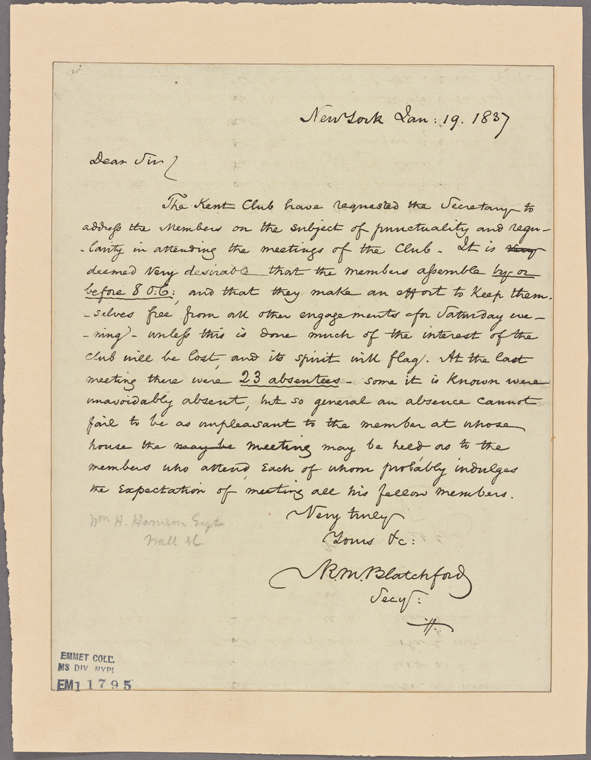 New York Jan: 19. 1837
Dear Sir
The Kent Club have requested the Secretary to
address the Members on the subject of punctuality and regu-
-larity in attending the meetings of the Club - It is very
deemed very desirable that the members assemble by or
before 8 O.C; and that they make an effort to keep them-
-selves free from all other engagements for Saturday eve-
-ning - unless this is done much of the interest of the
Club will be lost, and its spirit will flag. At the last
meeting there were 23 absentees - some it is known were
unavoidably absent, but so general an absence cannot
fail to be as unpleasant to the member at whose
house the may be meeting may be held as to the
members who attend, each of whom probably indulges
the expectation of meeting all his fellow members.
Very truly
Yours &c:
R M Blatchford
Secy:
Wm H. Harrison Esqr
Wall St
EMMET COLL.
MS DIV NYPL
EM 11795